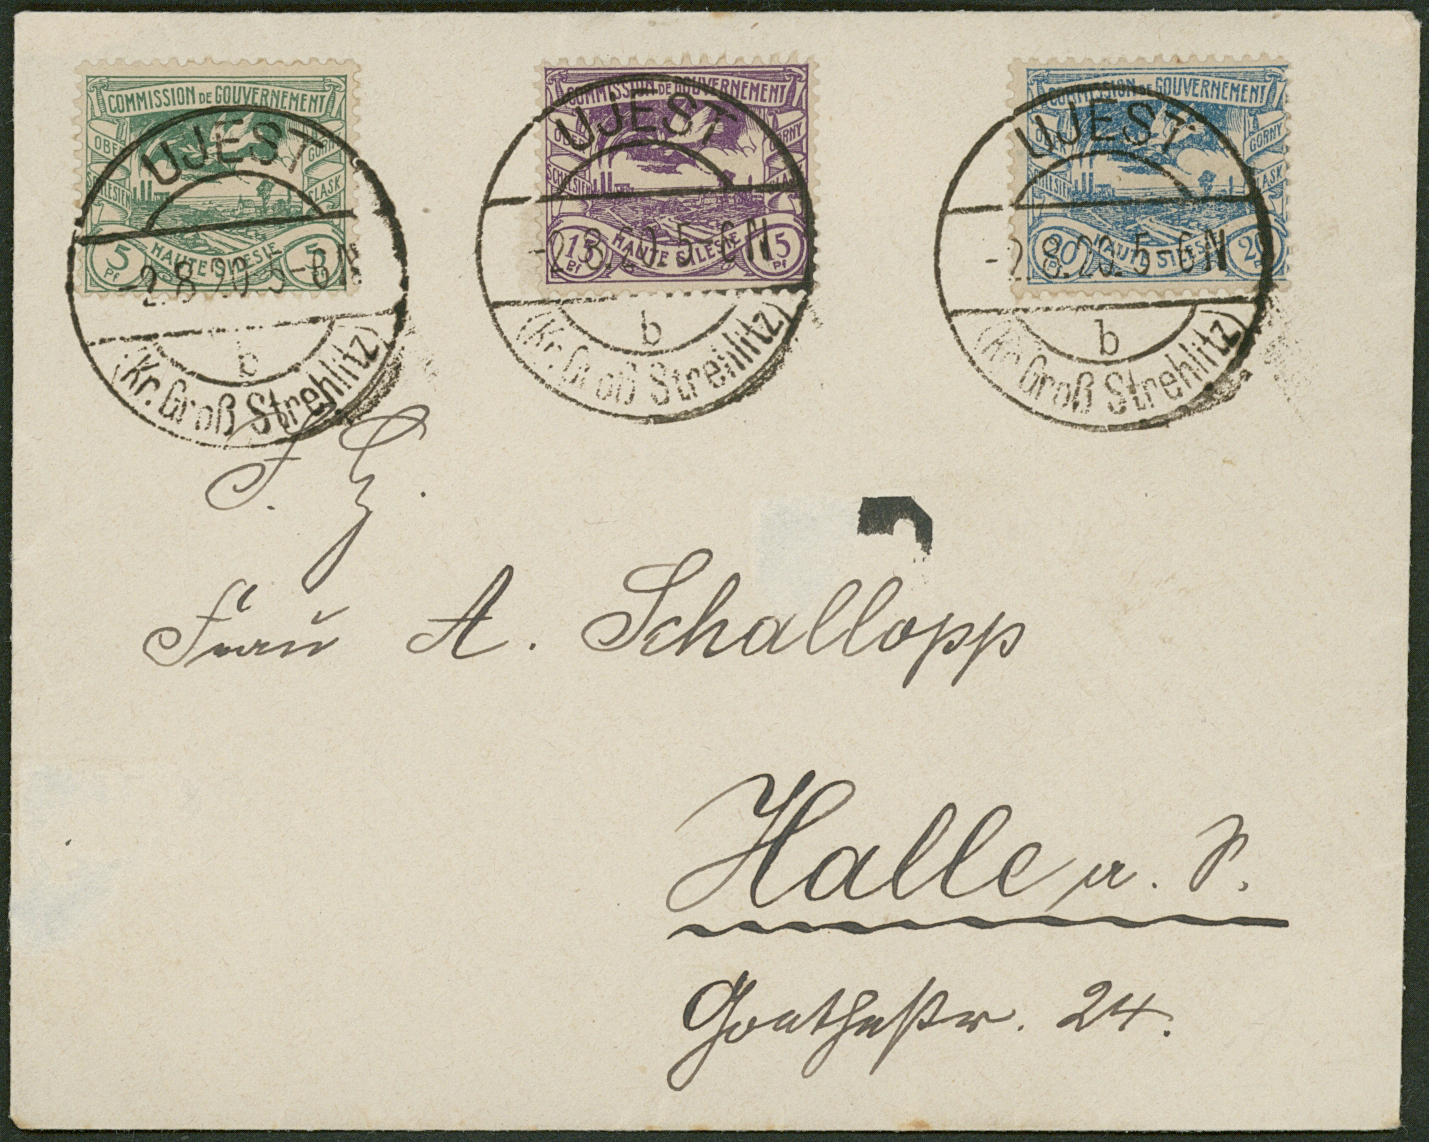 COMMISSION DE GOUVERNEMENT
OBER GORNY
SCHLESIEN SLASK
5 Pf HAUTE SILESIE 5 Pf
COMMISSION DE GOUVERNEMENT
GORNY
SCHLESIEN
15 Pf HAUTE SILESIE 15 Pf
COMMISSION DE GOUVERNEMENT
GORNY
SCHLESIEN SLASK
20 Pf HAUTE SILESIE 20 Pf
UJEST
-2.8.20. 5-6N
b
(Kr. Groß Strehlitz)
UJEST
-2.8.20. 5-6N
b
(Kr. Groß Strehlitz)
UJEST
-2.8.20. 5-6N
b
(Kr. Groß Strehlitz)
Frau A. Schallopp
Halle a. S.
Goethestr. 24.